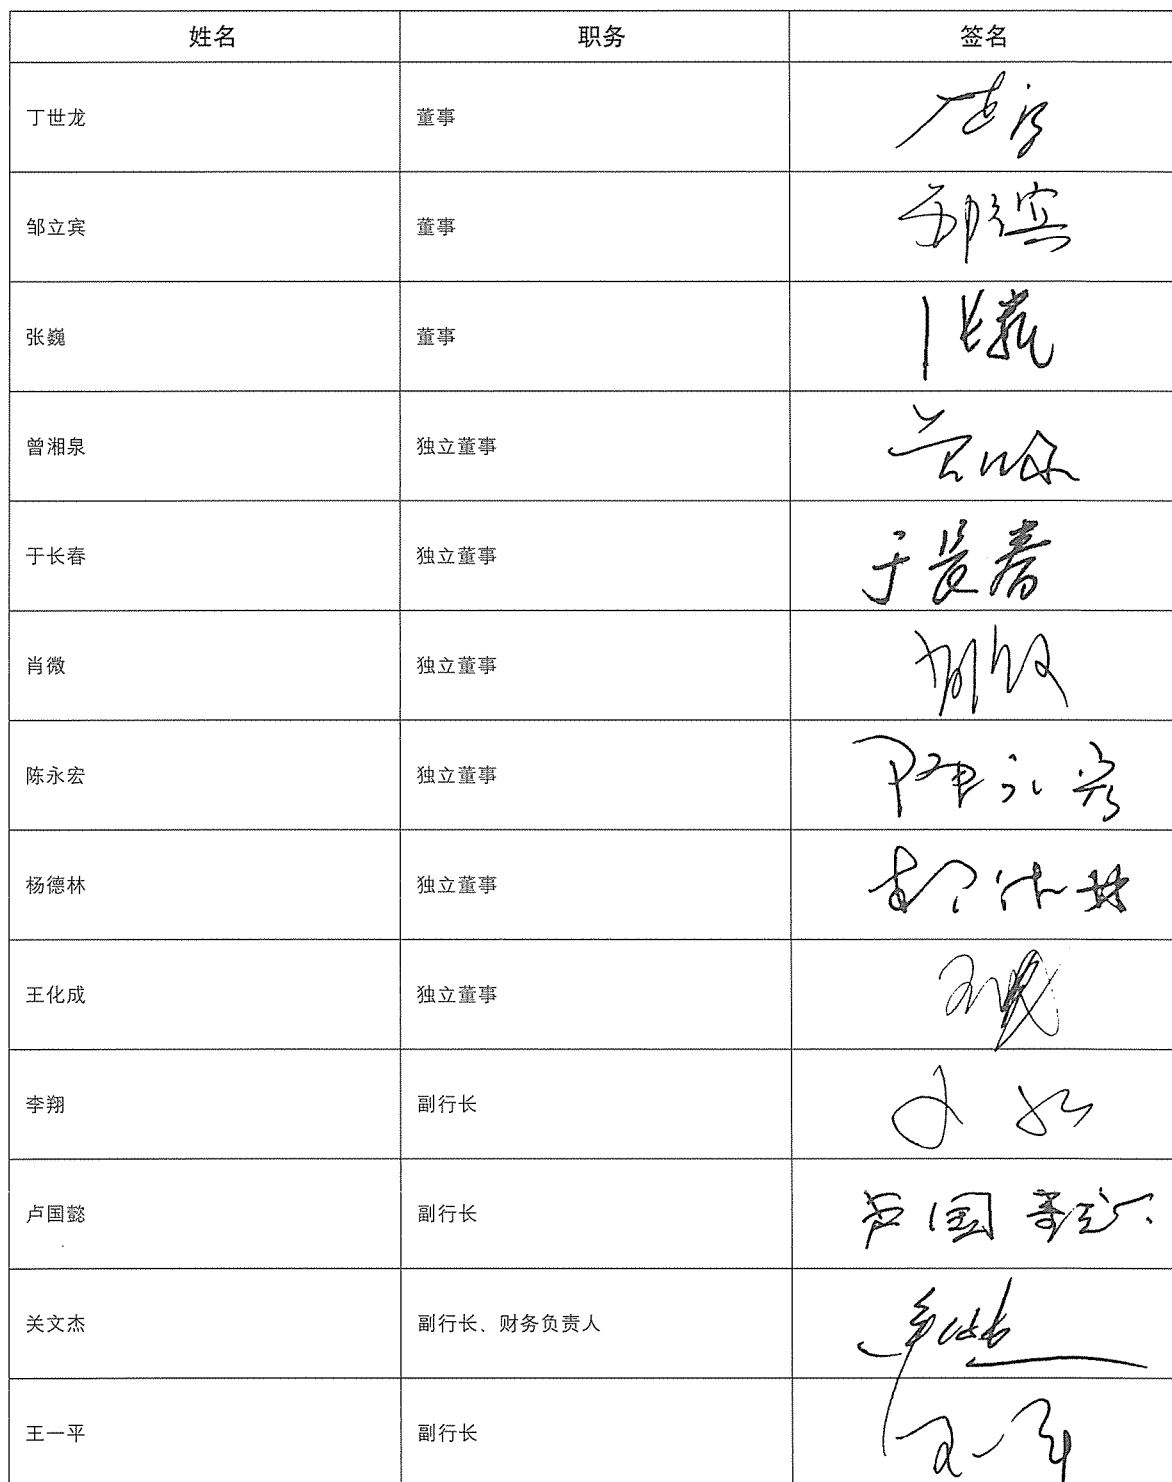 姓名 职务 签名
丁世龙 董事
邹立宾 董事 邹立宾
张巍 董事 张巍
曾湘泉 独立董事
于长春 独立董事 于長春
肖微 独立董事 肖微
陈永宏 独立董事 陈永宏
杨德林 独立董事
王化成 独立董事
李翔 副行长
卢国懿 副行长 卢国懿
关文杰 副行长、财务负责人
王一平 副行长 王一平